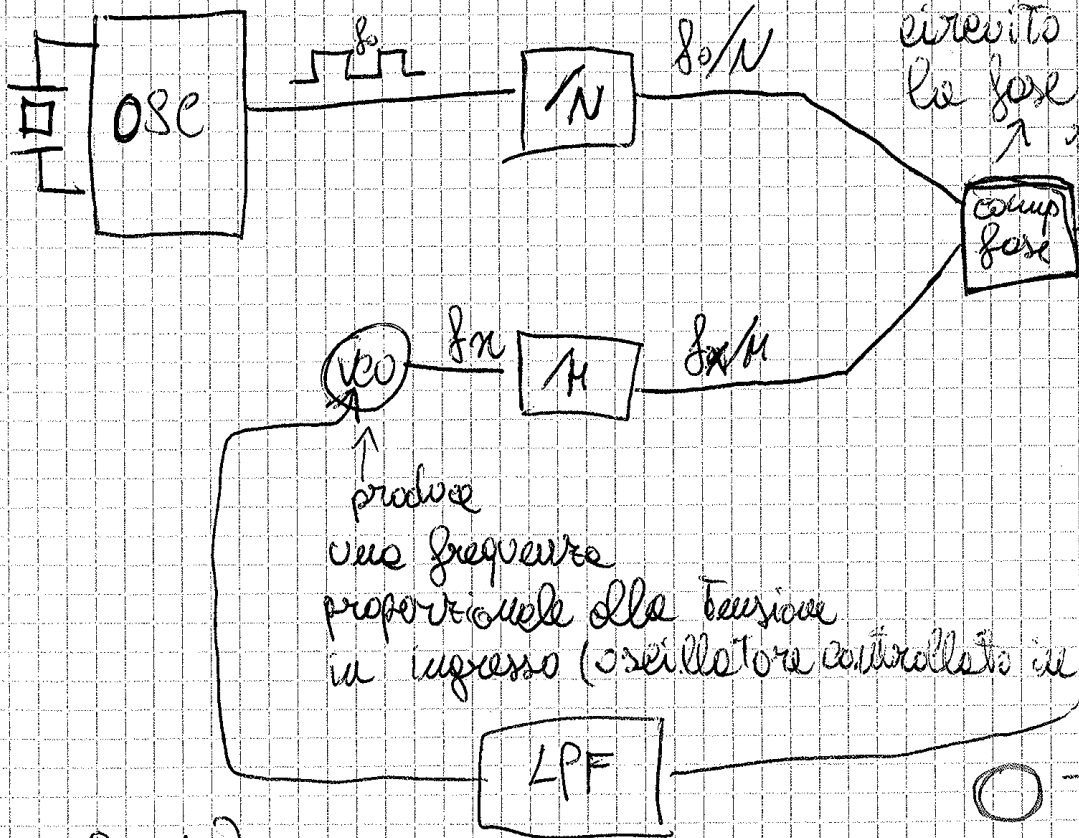 circuito
la fase
OSC
f₀
/N
f₀/N
comp
fase
VCO
fx
/M
fx/M
produce
una frequenza
proporzionale alla tensione
in ingresso (oscillatore controllato in
LPF